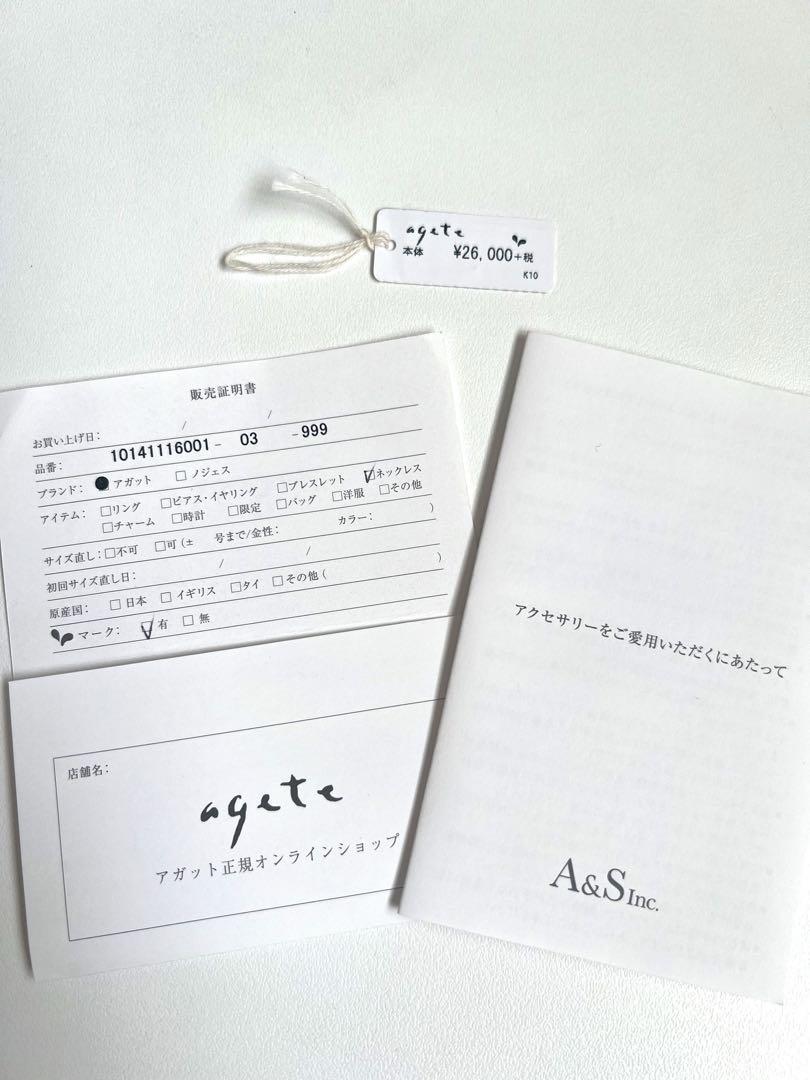 agete
本体 ¥26,000+税
K10
販売証明書
お買い上げ日: / /
品番: 10141116001- 03 -999
ブランド: アガット □ ノジェス
アイテム: □リング □ピアス・イヤリング □ブレスレット ☑ネックレス
□チャーム □時計 □限定 □バッグ □洋服 □その他
サイズ直し: □不可 □可 (± 号まで/金性: カラー: )
初回サイズ直し日: / /
原産国: □ 日本 □ イギリス □ タイ □ その他 ( )
マーク: ☑ 有 □ 無
店舗名:
agete
アガット正規オンラインショップ
アクセサリーをご愛用いただくにあたって
A&S Inc.